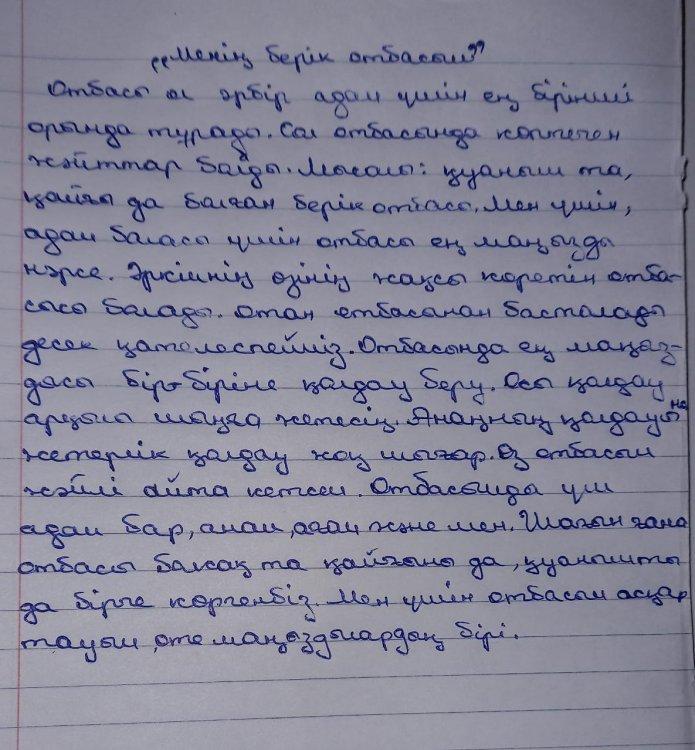 „Менің берік отбасым”
Отбасы ол әрбір адам үшін ең бірінші
орында тұрады. Сол отбасында көптеген
жәйттар балды. Мысалы: қуаныш та,
қайғы да болған берік отбасы. Мен үшін,
адам баласы үшін отбасы ең маңызды
нәрсе. Әркімнің өзінің жақсы көретін отба-
сысы болады. Отан отбасынан басталады
десек қателеспейміз. Отбасында ең маңыз-
дысы бір-біріне қолдау беру. Осы қолдау
арқылы шыңға жетесің. Анаңның қолдауына
жетерлік қолдау жоқ шығар. Өз отбасым
жәйлі айта кетсем. Отбасымда үш
адам бар, анам, ағам және мен. Шағын ғана
отбасы болсақ та қайғыны да, қуанышты
да бірге көргенбіз. Мен үшін отбасым асқар
тауым, өте маңыздылардың бірі.